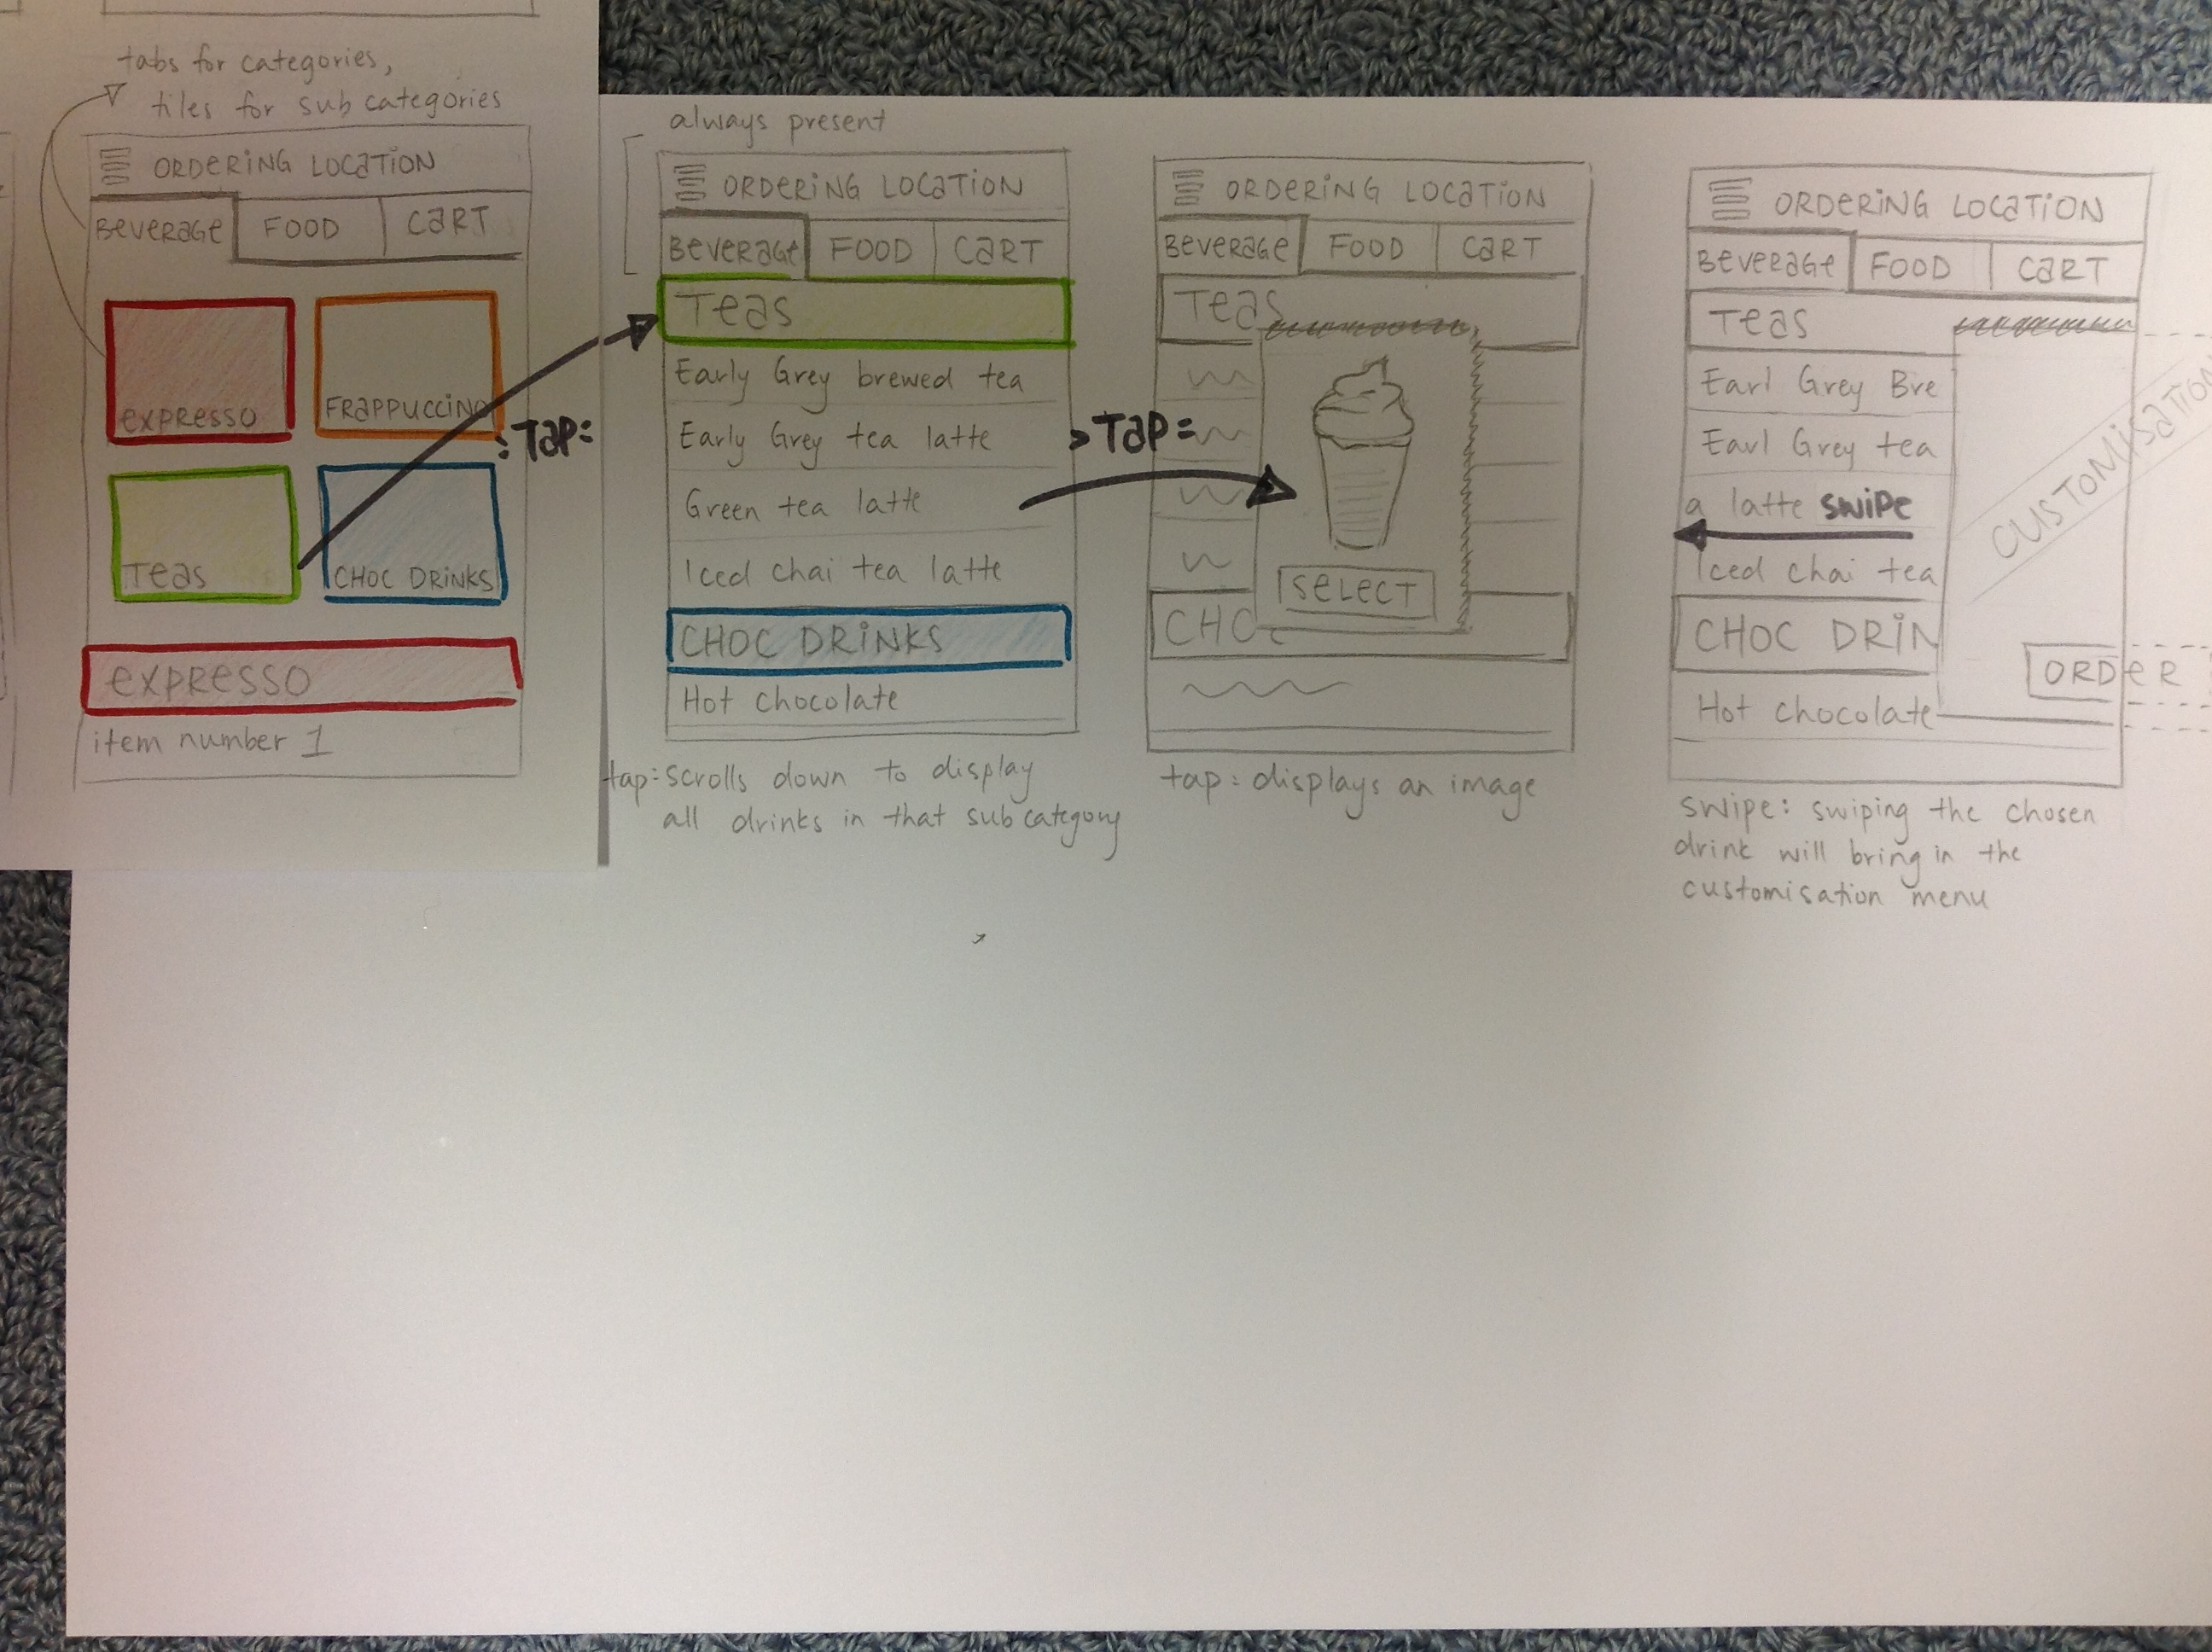 tabs for categories,
tiles for sub categories
ORDERING LOCATION
BEVERAGE FOOD CART
EXPRESSO FRAPPUCCINO
TEAS CHOC DRINKS
EXPRESSO
item number 1
:TAP:
always present
ORDERING LOCATION
BEVERAGE FOOD CART
TEAS
Early Grey brewed tea
Early Grey tea latte
Green tea latte
Iced chai tea latte
CHOC DRINKS
Hot chocolate
tap: scrolls down to display
all drinks in that sub category
>TAP:
ORDERING LOCATION
BEVERAGE FOOD CART
TEAS
SELECT
CHOC
tap: displays an image
ORDERING LOCATION
BEVERAGE FOOD CART
TEAS
Earl Grey Bre
Earl Grey tea
a latte SWIPE
Iced chai tea
CHOC DRIN
Hot chocolate
CUSTOMISATION
ORDER
swipe: swiping the chosen
drink will bring in the
customisation menu